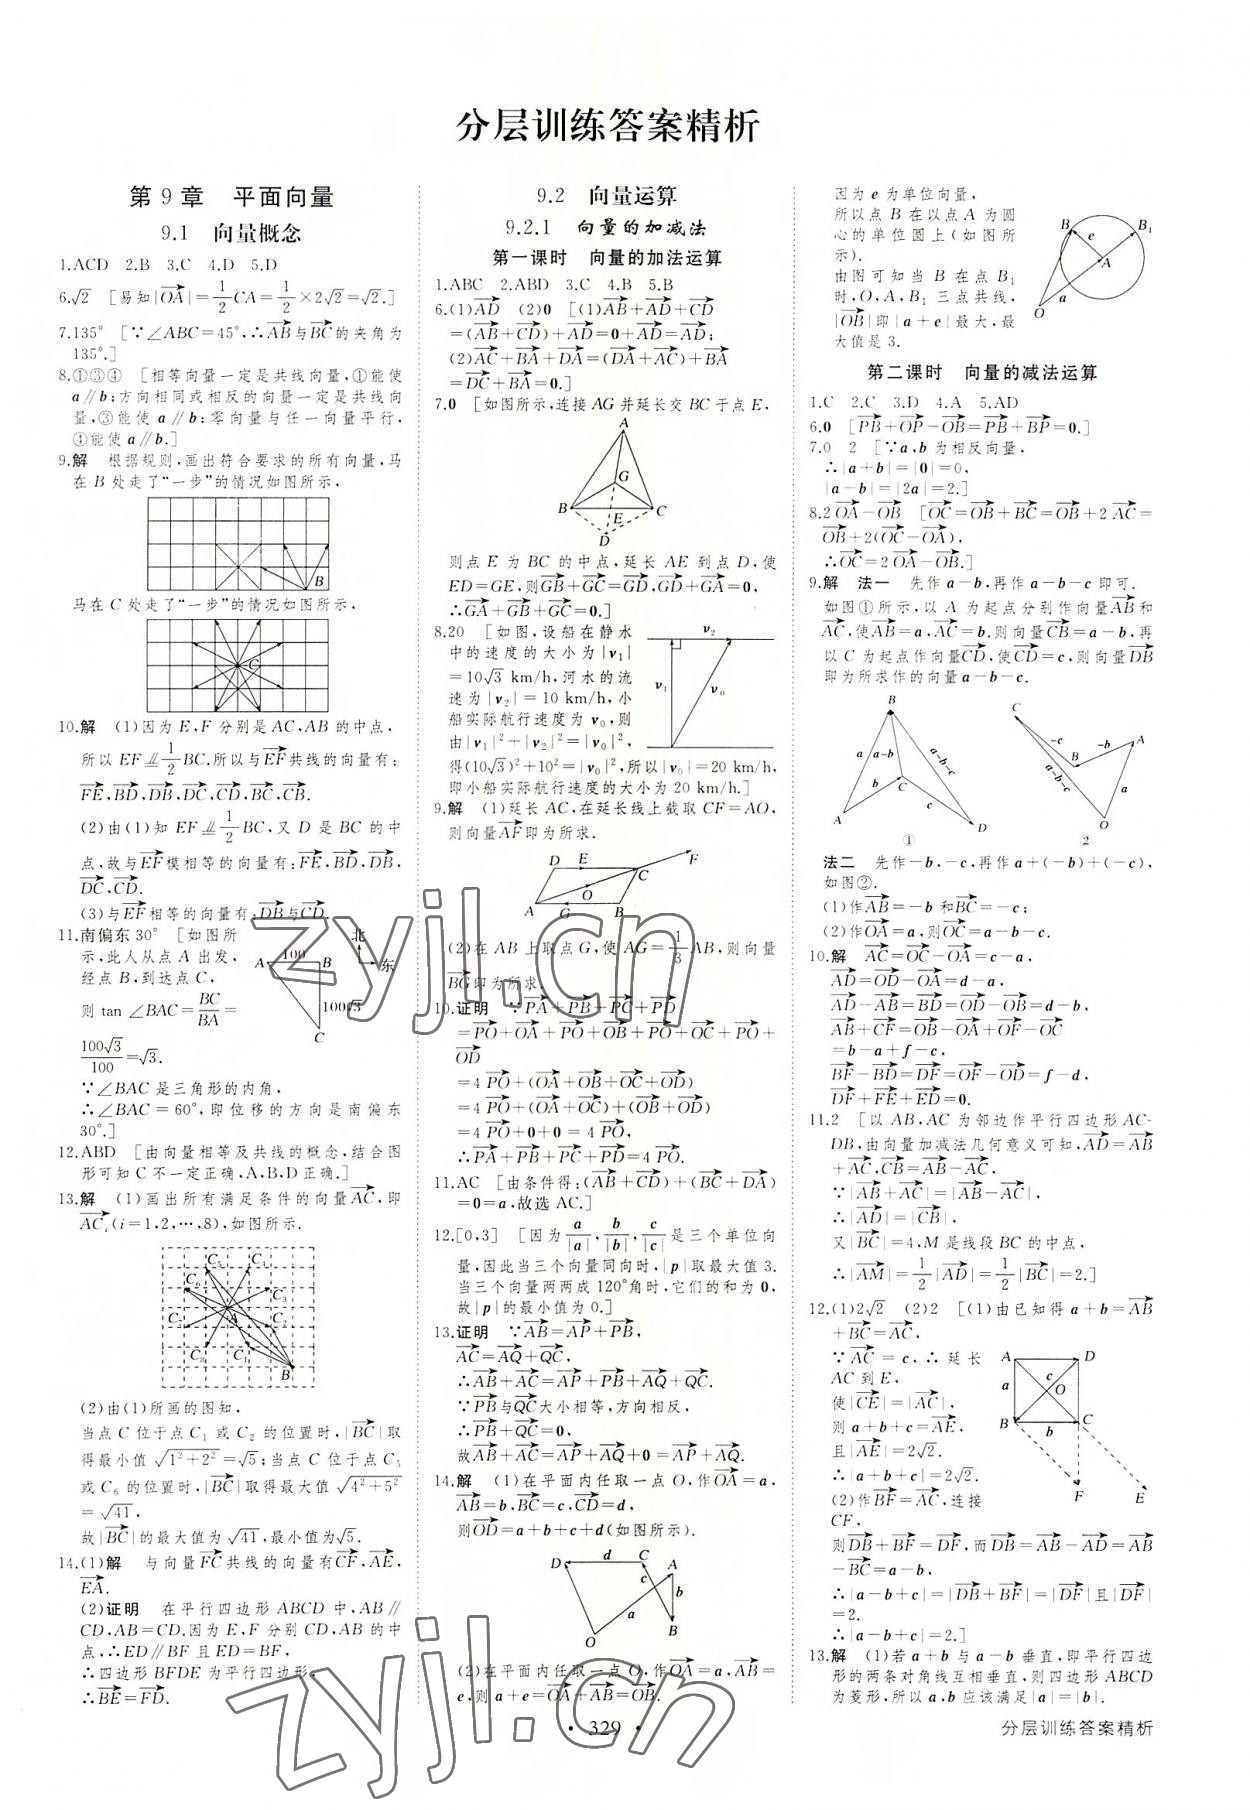 分层训练答案精析
第9章　平面向量
9.1　向量概念
1.ACD　2.B　3.C　4.D　5.D
6.√2　[易知|OA|=1/2CA=1/2×2√2=√2.]
7.135°　[∵∠ABC=45°,∴AB与BC的夹角为
135°.]
8.①③④　[相等向量一定是共线向量,①能使
a∥b;方向相同或相反的向量一定是共线向
量,③能使a∥b;零向量与任一向量平行,
④能使a∥b.]
9.解　根据规则,画出符合要求的所有向量,马
在B处走了“一步”的情况如图所示,
B
马在C处走了“一步”的情况如图所示,
C
10.解　(1)因为E,F分别是AC,AB的中点,
所以EF⫽1/2BC.所以与EF共线的向量有:
FE,BD,DB,DC,CD,BC,CB.
(2)由(1)知EF⫽1/2BC,又D是BC的中
点,故与EF模相等的向量有:FE,BD,DB,
DC,CD.
(3)与EF相等的向量有:DB与CD.
11.南偏东30°　[如图所
示,此人从点A出发,
经点B,到达点C,
则tan∠BAC=BC/BA=
100√3/100=√3.
北
东
A　100　B
100√3
C
∵∠BAC是三角形的内角,
∴∠BAC=60°,即位移的方向是南偏东
30°.]
12.ABD　[由向量相等及共线的概念,结合图
形可知C不一定正确,A、B、D正确.]
13.解　(1)画出所有满足条件的向量AC,即
ACi(i=1,2,…,8),如图所示.
(2)由(1)所画的图知,
当点C位于点C1或C2的位置时,|BC|取
得最小值√(1²+2²)=√5;当点C位于点C5
或C6的位置时,|BC|取得最大值√(4²+5²)
=√41,
故|BC|的最大值为√41,最小值为√5.
14.(1)解　与向量FC共线的向量有CF,AE,
EA.
(2)证明　在平行四边形ABCD中,AB∥
CD,AB=CD.因为E,F分别CD,AB的中
点,∴ED∥BF且ED=BF,
∴四边形BFDE为平行四边形,
∴BE=FD.
9.2　向量运算
9.2.1　向量的加减法
第一课时　向量的加法运算
1.ABC　2.ABD　3.C　4.B　5.B
6.(1)AD　(2)0　[(1)AB+AD+CD
=(AB+CD)+AD=0+AD=AD;
(2)AC+BA+DA=(DA+AC)+BA
=DC+BA=0.]
7.0　[如图所示,连接AG并延长交BC于点E,
A
G
B　E　C
D
则点E为BC的中点,延长AE到点D,使
ED=GE,则GB+GC=GD,GD+GA=0,
∴GA+GB+GC=0.]
8.20　[如图,设船在静水
中的速度的大小为|v1|
=10√3 km/h,河水的流
速为|v2|=10 km/h,小
船实际航行速度为v0,则
由|v1|²+|v2|²=|v0|²,
v2
v1　v0
得(10√3)²+10²=|v0|²,所以|v0|=20 km/h,
即小船实际航行速度的大小为20 km/h.]
9.解　(1)延长AC,在延长线上截取CF=AO,
则向量AF即为所求.
D　E　C　F
O
A　G　B
(2)在AB上取点G,使AG=1/3AB,则向量
BG即为所求.
10.证明　∵PA+PB+PC+PD
=PO+OA+PO+OB+PO+OC+PO+
OD
=4PO+(OA+OB+OC+OD)
=4PO+(OA+OC)+(OB+OD)
=4PO+0+0=4PO,
∴PA+PB+PC+PD=4PO.
11.AC　[由条件得:(AB+CD)+(BC+DA)
=0=a,故选AC.]
12.[0,3]　[因为a/|a|,b/|b|,c/|c|是三个单位向
量,因此当三个向量同向时,|p|取最大值3.
当三个向量两两成120°角时,它们的和为0,
故|p|的最小值为0.]
13.证明　∵AB=AP+PB,
AC=AQ+QC,
∴AB+AC=AP+PB+AQ+QC.
∵PB与QC大小相等,方向相反,
∴PB+QC=0,
故AB+AC=AP+AQ+0=AP+AQ.
14.解　(1)在平面内任取一点O,作OA=a,
AB=b,BC=c,CD=d,
则OD=a+b+c+d(如图所示).
D　d　C　A
c　b
a　B
O
(2)在平面内任取一点O,作OA=a,AB=
e,则a+e=OA+AB=OB.
因为e为单位向量,
所以点B在以点A为圆
心的单位圆上(如图所
示).
由图可知当B在点B1
时,O,A,B1三点共线,
|OB|即|a+e|最大,最
大值是3.
B　B1
e
A
a
O
第二课时　向量的减法运算
1.C　2.C　3.D　4.A　5.AD
6.0　[PB+OP-OB=PB+BP=0.]
7.0　2　[∵a,b为相反向量,
∴|a+b|=|0|=0,
|a-b|=|2a|=2.]
8.2OA-OB　[OC=OB+BC=OB+2AC=
OB+2(OC-OA),
∴OC=2OA-OB.]
9.解　法一　先作a-b,再作a-b-c即可.
如图①所示,以A为起点分别作向量AB和
AC,使AB=a,AC=b.则向量CB=a-b,再
以C为起点作向量CD,使CD=c,则向量DB
即为所求作的向量a-b-c.
B　C
a　a-b　a-b-c　-c　-b　A
B
b　C　c　a-b-c　a
A　D　O
①　2
法二　先作-b,-c,再作a+(-b)+(-c),
如图②.
(1)作AB=-b和BC=-c;
(2)作OA=a,则OC=a-b-c.
10.解　AC=OC-OA=c-a,
AD=OD-OA=d-a,
AD-AB=BD=OD-OB=d-b,
AB+CF=OB-OA+OF-OC
=b-a+f-c,
BF-BD=DF=OF-OD=f-d,
DF+FE+ED=0.
11.2　[以AB,AC为邻边作平行四边形AC-
DB,由向量加减法几何意义可知,AD=AB
+AC,CB=AB-AC,
∵|AB+AC|=|AB-AC|,
∴|AD|=|CB|,
又|BC|=4,M是线段BC的中点,
∴|AM|=1/2|AD|=1/2|BC|=2.]
12.(1)2√2　(2)2　[(1)由已知得a+b=AB
+BC=AC,
∵AC=c,∴延长
AC到E,
使|CE|=|AC|,
则a+b+c=AE,
且|AE|=2√2.
∴|a+b+c|=2√2.
(2)作BF=AC,连接
CF,
A　D
c
a　O
B　b　C
F　E
则DB+BF=DF,而DB=AB-AD=AB
-BC=a-b,
∴|a-b+c|=|DB+BF|=|DF|且|DF|
=2.
∴|a-b+c|=2.]
13.解　(1)若a+b与a-b垂直,即平行四边
形的两条对角线互相垂直,则四边形ABCD
为菱形,所以a,b应该满足|a|=|b|.
• 329 •
分层训练答案精析
zyjl.cn
zyjl.cn